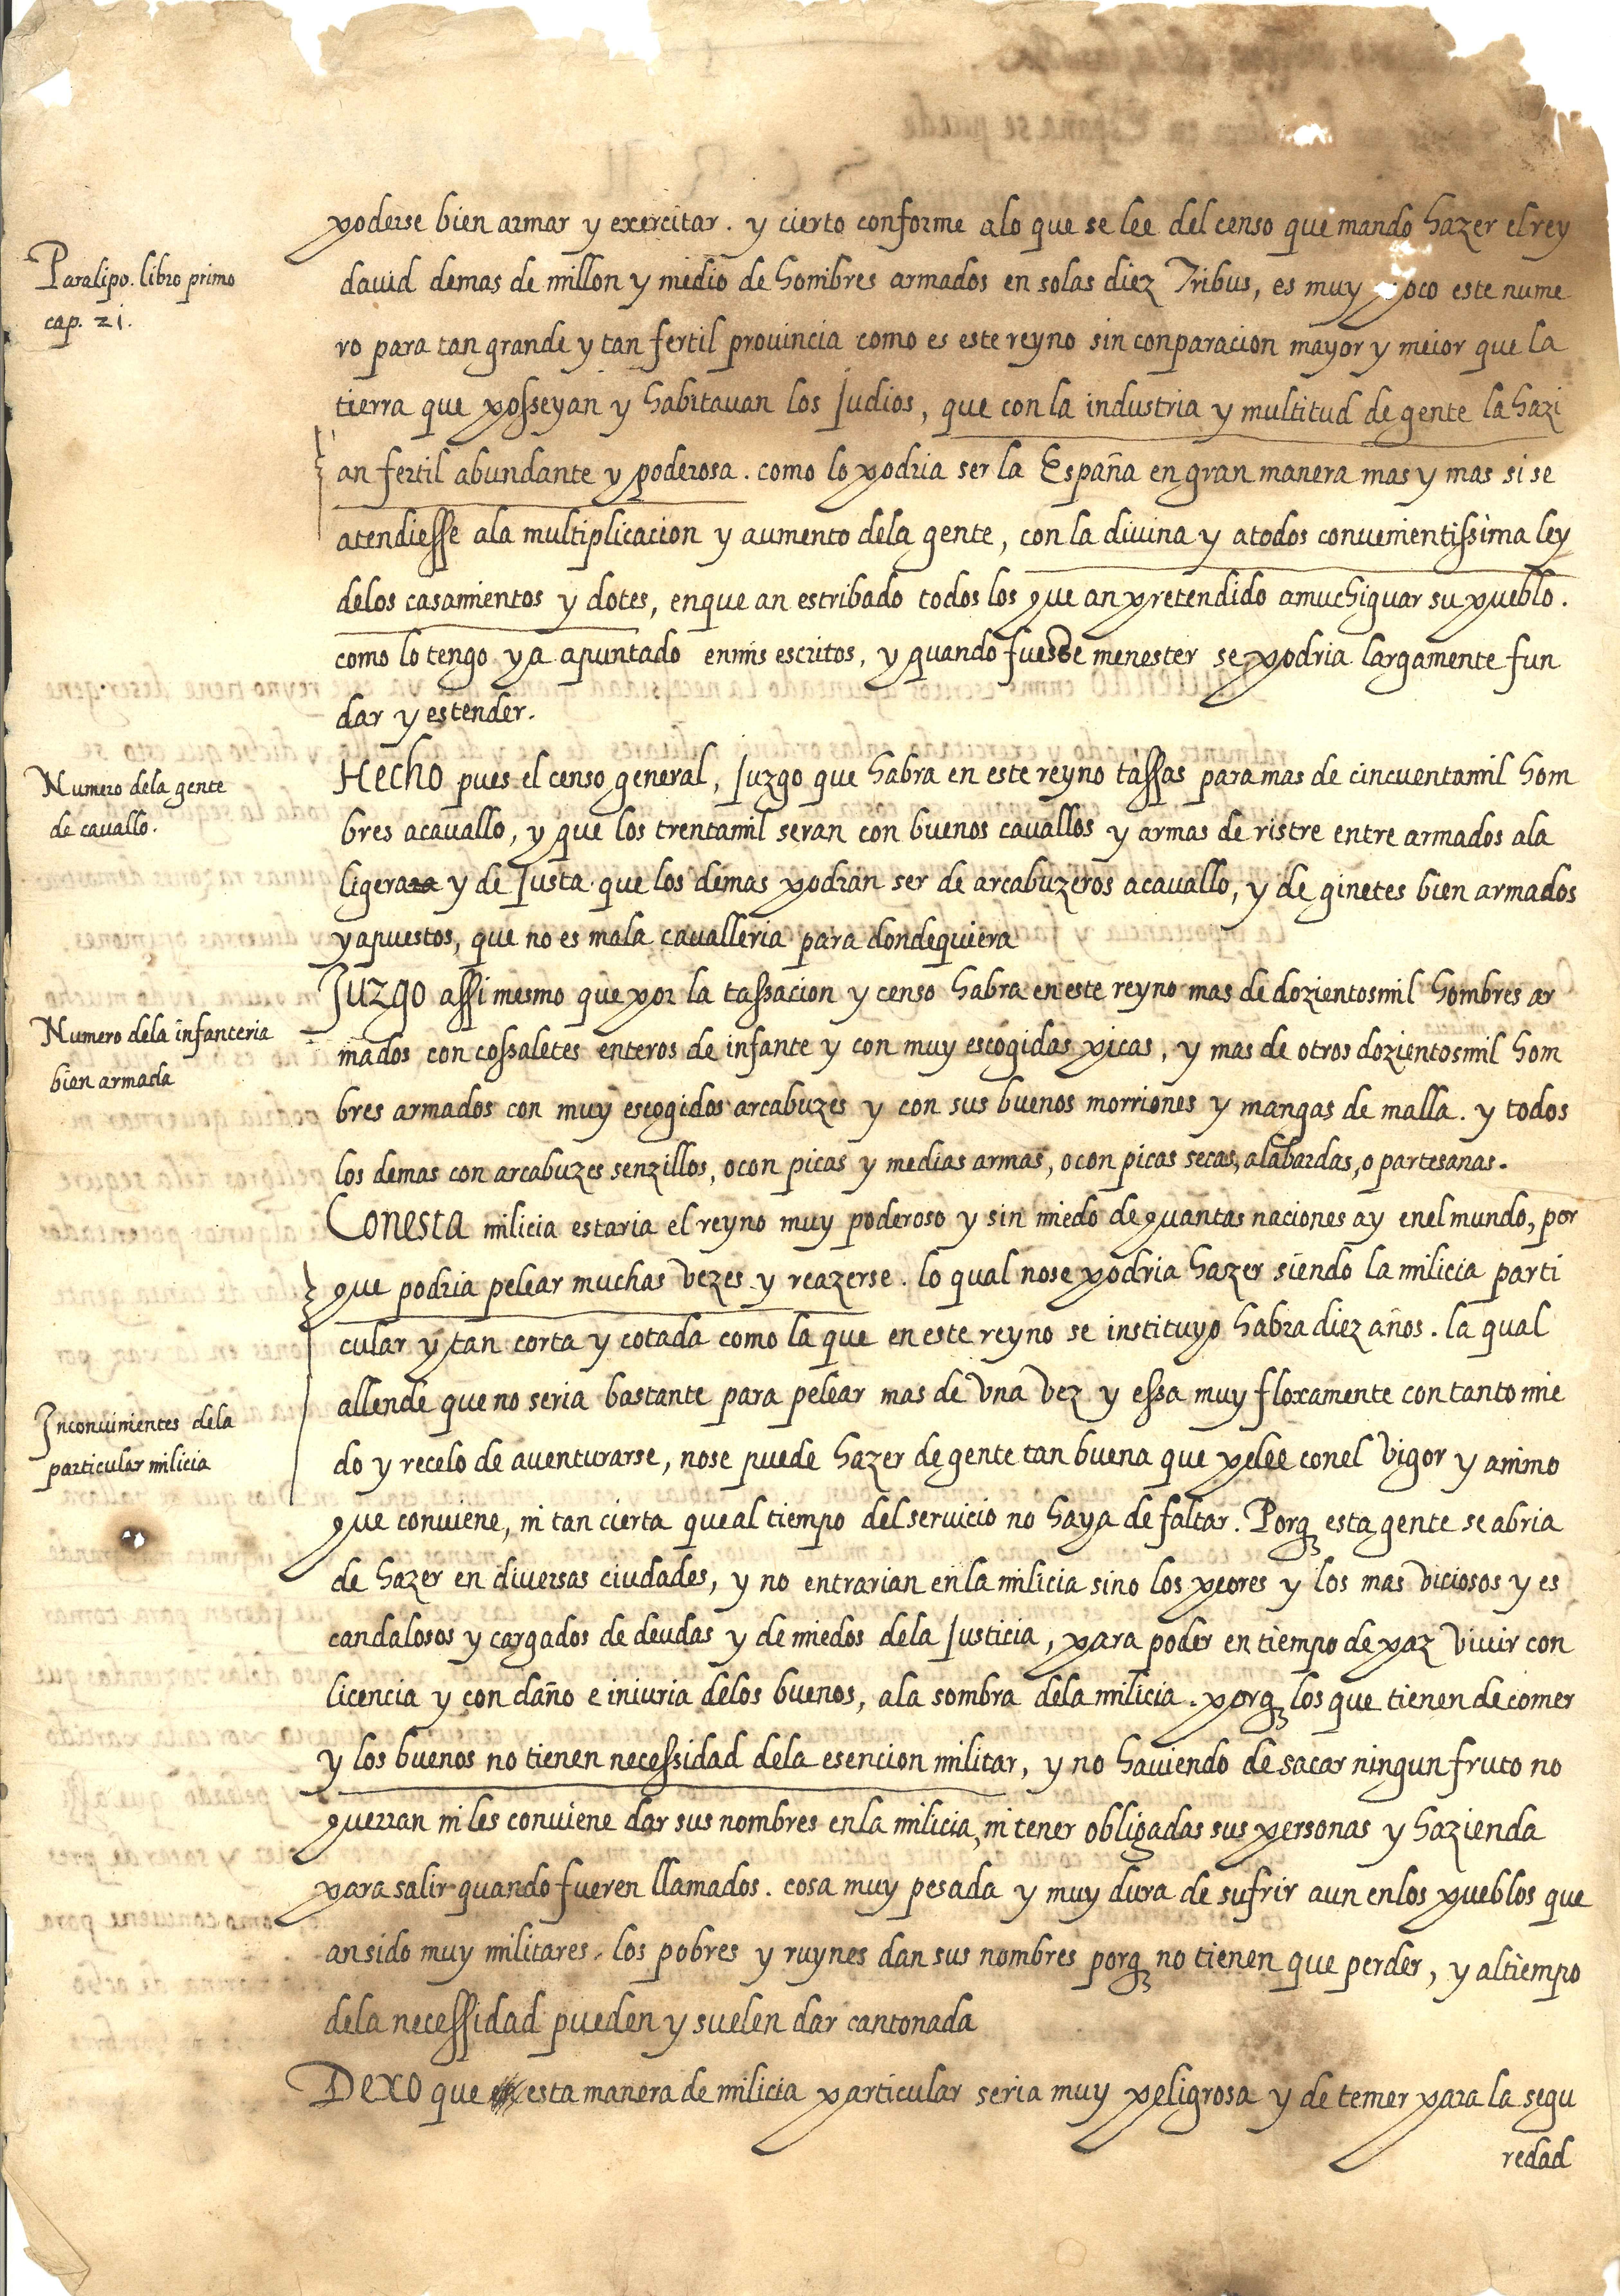 poderse bien armar y exercitar. y cierto conforme alo que se lee del censo que mando hazer el rey
Paralipo. libro primo
cap. 21.
dauid demas de millon y medio de hombres armados en solas diez Tribus, es muy poco este nume
ro para tan grande y tan fertil prouincia como es este reyno sin conparacion mayor y meior que la
tierra que posseyan y habitauan los Judios, que con la industria y multitud de gente la hazi
an fertil abundante y poderosa. como lo podria ser la España en gran manera mas y mas si se
atendiesse ala multiplicacion y aumento dela gente, con la diuina y atodos conuenientissima ley
delos casamientos y dotes, enque an estribado todos los que an pretendido amuchiguar su pueblo.
como lo tengo ya apuntado enmis escritos, y quando fuesse menester se podria largamente fun
dar y estender.
Numero dela gente
de cauallo.
Hecho pues el censo general, Juzgo que habra en este reyno tassas para mas de cincuentamil hom
bres acauallo, y que los trentamil seran con buenos cauallos y armas de ristre entre armados ala
ligera y de Justa que los demas podran ser de arcabuzeros acauallo, y de ginetes bien armados
yapuestos, que no es mala caualleria para dondequiera
Numero dela infanteria
bien armada
Juzgo assi mesmo que por la tassacion y censo habra en este reyno mas de dozientosmil hombres ar
mados con cossaletes enteros de infante y con muy escogidas picas, y mas de otros dozientosmil hom
bres armados con muy escogidos arcabuzes y con sus buenos morriones y mangas de malla. y todos
los demas con arcabuzes senzillos, ocon picas y medias armas, ocon picas secas, alabardas, o partesanas.
Conesta milicia estaria el reyno muy poderoso y sin miedo de quantas naciones ay enel mundo, por
que podria pelear muchas vezes y reazerse. lo qual nose podria hazer siendo la milicia parti
cular y tan corta y cotada como la que en este reyno se instituyo habra diez años. la qual
Inconuinientes dela
particular milicia
allende que no seria bastante para pelear mas de vna vez y essa muy floxamente con tanto mie
do y recelo de auenturarse, nose puede hazer de gente tan buena que pelee conel vigor y animo
que conuiene, ni tan cierta que al tiempo del seruicio no haya de faltar. Porq esta gente se abria
de hazer en diuersas ciudades, y no entrarian enla milicia sino los peores y los mas viciosos y es
candalosos y cargados de deudas y de miedos dela Justicia, para poder en tiempo de paz viuir con
licencia y con daño e iniuria delos buenos, ala sombra dela milicia. porq los que tienen de comer
y los buenos no tienen necessidad dela esencion militar, y no hauiendo de sacar ningun fruto no
querran ni les conuiene dar sus nombres enla milicia, ni tener obligadas sus personas y hazienda
para salir quando fueren llamados. cosa muy pesada y muy dura de sufrir aun enlos pueblos que
an sido muy militares. los pobres y ruynes dan sus nombres porq no tienen que perder, y al tiempo
dela necessidad pueden y suelen dar cantonada
Dexo que esta manera de milicia particular seria muy peligrosa y de temer para la segu
redad